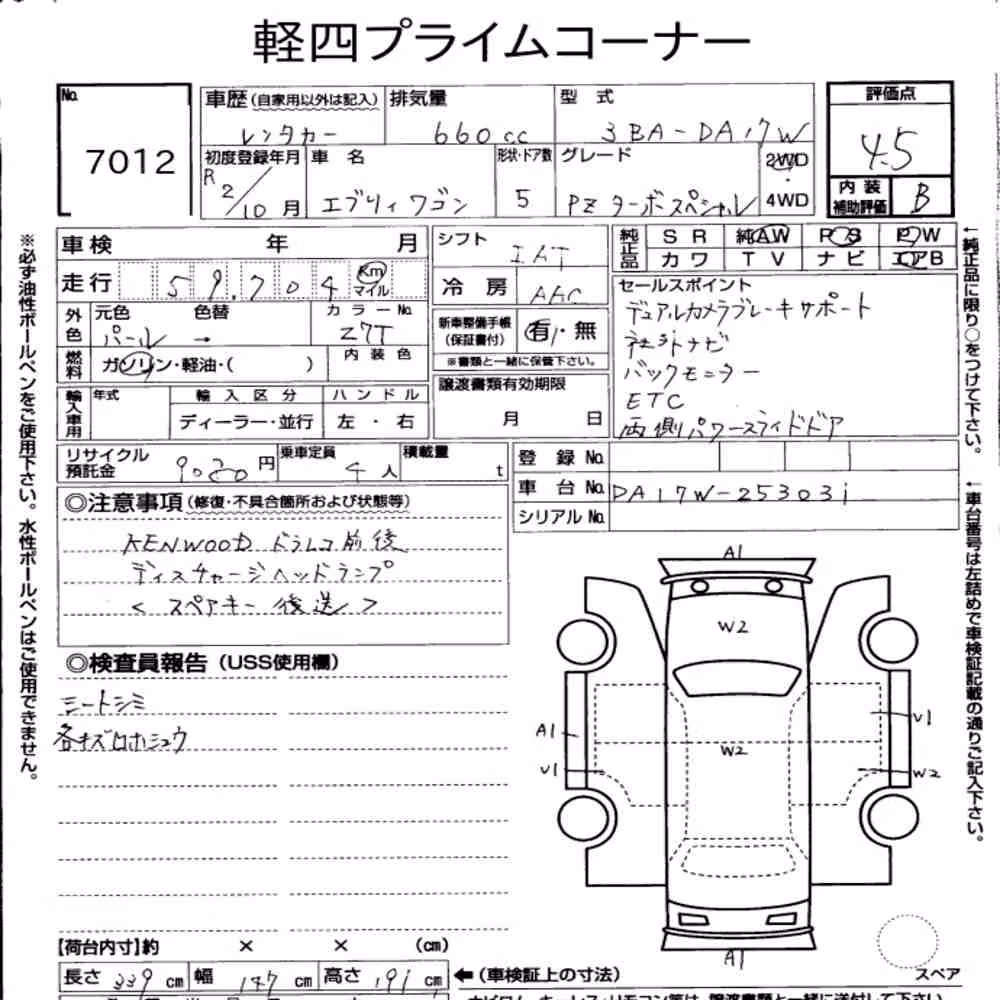 軽四プライムコーナー
No.
7012
車歴 (自家用以外は記入)
レンタカー
排気量
660cc
型 式
3BA-DA17W
評価点
4.5
初度登録年月
R2/10月
車 名
エブリィワゴン
形状・ドア数
5
グレード
PZターボスペシャル
2WD
・
4WD
内装
補助評価
B
車検 年 月
走行 59,704 Km
マイル
外色
元色
パール
色替
→
カラーNo.
Z7T
燃料
ガソリン・軽油・( )
内装色
輸入車用
年式
輸入区分
ディーラー・並行
ハンドル
左・右
シフト
IAT
冷房
AAC
新車整備手帳
(保証書付)
有・無
※書類と一緒に保管下さい。
譲渡書類有効期限
月 日
純正品
SR 純AW PS PW
カワ TV ナビ エアB
セールスポイント
デュアルカメラブレーキサポート
社外ナビ
バックモニター
ETC
両側パワースライドドア
リサイクル
預託金
9020円
乗車定員
4人
積載量
t
登録No.
車台No. DA17W-253031
シリアルNo.
◎注意事項 (修復・不具合箇所および状態等)
KENWOOD ドラレコ前後
ディスチャージヘッドランプ
<スペアキー後送>
◎検査員報告 (USS使用欄)
シートシミ
各キズロホシュウ
A1
W2
W2
A1
V1
V1
W2
A1
スペア
【荷台内寸】約 × × (cm)
長さ 339 cm 幅 147 cm 高さ 191 cm
←(車検証上の寸法)
※必ず油性ボールペンをご使用下さい。水性ボールペンはご使用できません。
←純正品に限り○をつけて下さい。
←車台番号は左詰めで車検証記載の通りご記入下さい。